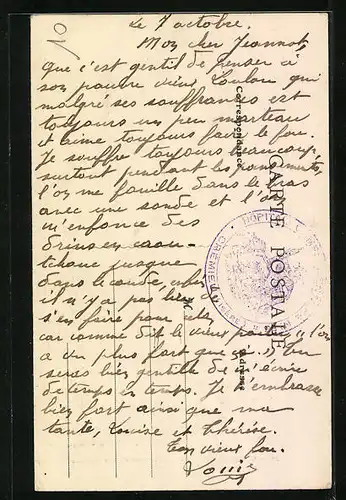 10
Le 7 octobre.
Mon cher Jeannot,
Que c'est gentil de penser à
son pauvre vieux Loulou qui
malgré ses souffrances est
toujours un peu marteau
et aime toujours faire le fou.
Je souffre toujours beaucoup,
surtout pendant les pansements,
l'on me fouille dans le bras
avec une sonde et l'on
m'enfonce des
drins en caou-
tchouc jusque
dans le coude, enfin
il n'y a pas bien
s'en faire pour cela
car comme dit le vieux "l'on
a vu plus fort que ça". Tu
seras bien gentille de m'écrire
de temps en temps. Je t'embrasse
bien fort ainsi que ma
tante, Louise et Thérèse.
Ton vieux fou.
Louis
CARTE POSTALE
Correspondance
Adresse
HOPITAL
CREMIEU